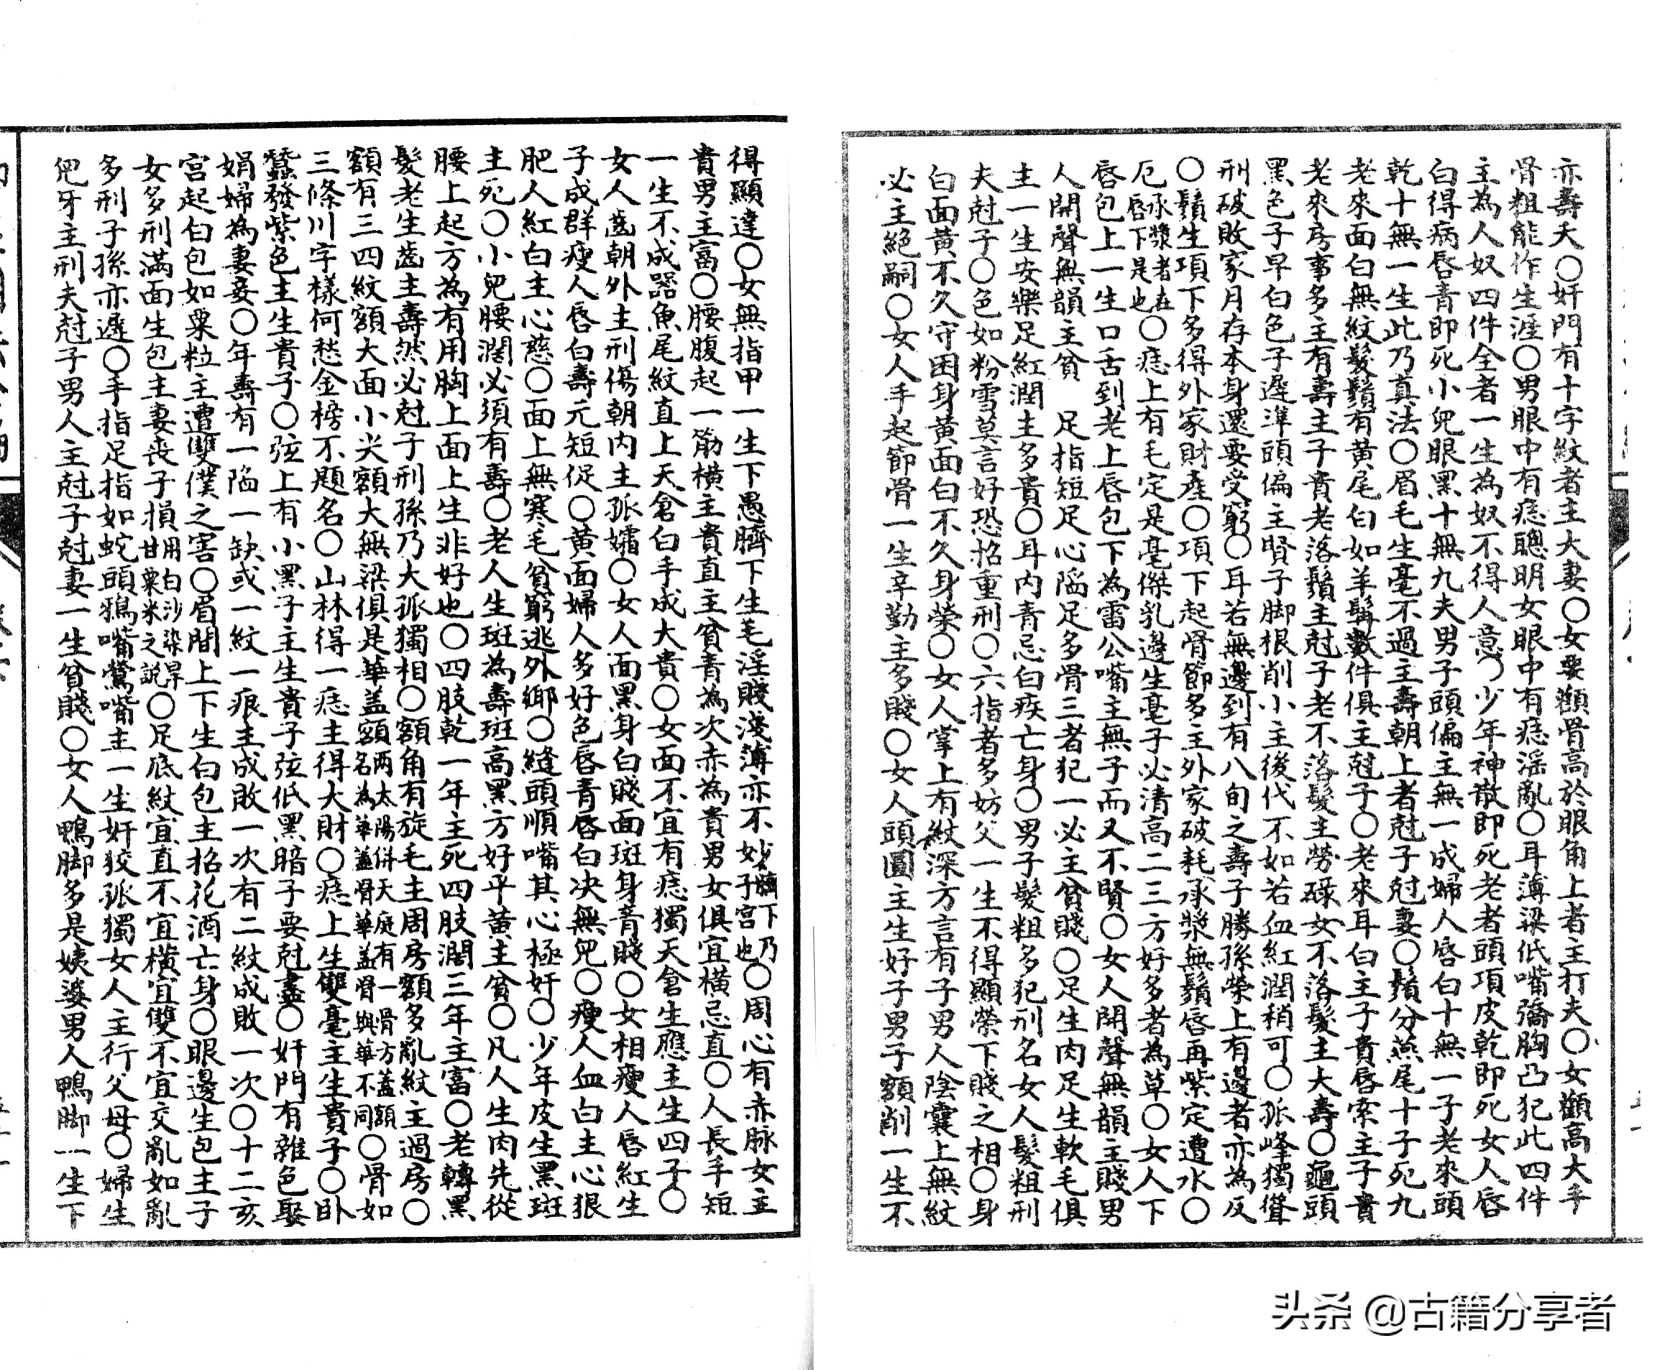 亦壽夭○奸門有十字紋者主大妻○女要顴骨高於眼角上者主打夫○女顴高大手
骨粗能作生涯○男眼中有痣聰明女眼中有痣淫亂○耳薄梁低嘴喬胸凸犯此四件
主為人奴四件全者一生為奴不得人意○少年神散即死老者頭項皮乾即死女人唇
白得病唇青即死小兒眼黑十無九夫男子頭偏主無一成婦人唇白十無一子老來頭
乾十無一生此乃真法○眉毛生毫不過主壽朝上者尅子尅妻○鬚分燕尾十子死九
老來面白無紋髮鬚有黃尾白如羊鬚數件俱主尅子○老來耳白主子貴唇索主子貴
老來房事多主有壽主子貴老落鬚主尅子老不落髮主勞碌女不落髮主大壽○龜頭
黑色子早白色子遲準頭偏主賢子脚根削小主後代不如若血紅潤稍可○孤峰獨聳
刑破敗家月存本身還要受窮○耳若無邊到有八旬之壽子勝孫榮上有邊者亦為反
○鬚生項下多得外家財產○項下起骨節多主外家破耗承漿無鬚唇再紫定遭水○
厄承漿者在唇下是也○痣上有毛定是毫傑乳邊生毫子必清高二三方好多者為草○女人下
唇包上一生口舌到老上唇包下為雷公嘴主無子而又不賢○女人開聲無韻主賤男
人開聲無韻主貧 足指短足心陷足多骨三者犯一必主貧賤○足生肉足生軟毛俱
主一生安樂足紅潤主多貴○耳內青忌白疾亡身○男子髮粗多犯刑名女人髮粗刑
夫尅子○色如粉雪莫言好恐招重刑○六指者多妨父一生不得顯榮下賤之相○身
白面黃不久守困身黃面白不久身榮○女人掌上有紋深方言有子男人陰囊上無紋
必主絕嗣○女人手起節骨一生辛勤主多賤○女人頭圓主生好子男子額削一生不
得顯達○女無指甲一生下愚臍下生毛淫賤淺薄亦不妙臍下乃子宮也○周心有赤脉女主
貴男主富○腰腹起一筋橫主貴直主貧青為次赤為貴男女俱宜橫忌直○人長手短
一生不成器魚尾紋直上天倉白手成大貴○女面不宜有痣獨天倉生應主生四子○
女人齒朝外主刑傷朝內主孤孀○女人面黑身白賤面斑身青賤○女相瘦人唇紅生
子成群瘦人唇白壽元短促○黃面婦人多好色唇青唇白決無兒○瘦人血白主心狠
肥人紅白主心慈○面上無寒毛貧窮逃外鄉○縫頭順嘴其心極奸○少年皮生黑斑
主死○小兒腰濶必須有壽○老人生斑為壽斑高黑方好平黃主貧○凡人生肉先從
腰上起方為有用胸上面上生非好也○四肢乾一年主死四肢潤三年主富○老轉黑
髮老生齒主壽然必尅子刑孫乃大孤獨相○額角有旋毛主周房額多亂紋主過房○
額有三四紋額大面小尖額大無梁俱是華盖額兩太陽併天庭有一骨方盖額名為華盖骨華盖骨與華不同○骨如
三條川字樣何愁金榜不題名○山林得一痣主得大財○痣上生雙毫主生貴子○臥
蠶發紫色主生貴子○弦上有小黑子主生貴子弦低黑暗子要尅盡○奸門有雜色娶
娼婦為妻妾○年壽有一陷一缺或一紋一痕主成敗一次有二紋成敗一次○十二亥
宮起白包如粟粒主遭雙僕之害○眉間上下生白包主招花酒亡身○眼邊生包主子
女多刑滿面生包主妻喪子損用白沙染旱甘粟米之說○足底紋宜直不宜橫宜雙不宜交亂如亂
多刑子孫亦遲○手指足指如蛇頭鴉嘴鶯嘴主一生奸狡孤獨女人主行父母○婦生
兜牙主刑夫尅子男人主尅子尅妻一生貧賤○女人鴨脚多是姨婆男人鴨脚一生下
头条 @古籍分享者